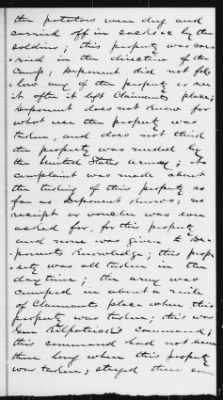 the potatoes were dug and
carried off in sacks by the
soldiers; this property was car
ried in the direction of the
Camp; Deponent did not fol
low any of the property or see
it after it left Claimants place;
Deponent does not know for
what use the property was
taken, and does not think
the property was needed by
the United States Army; No
complaint was made about
the taking of this property so
far as Deponent knows; no
receipt or voucher was ever
asked for, for this property
and none was given to De
ponents Knowledge; this prop
erty was all taken in the
day time; the army was
camped in about a mile
of Claimants place when this
property was taken; this was
Gen Kilpatrick's command;
this command had not been
there long when this property
was taken; stayed there some